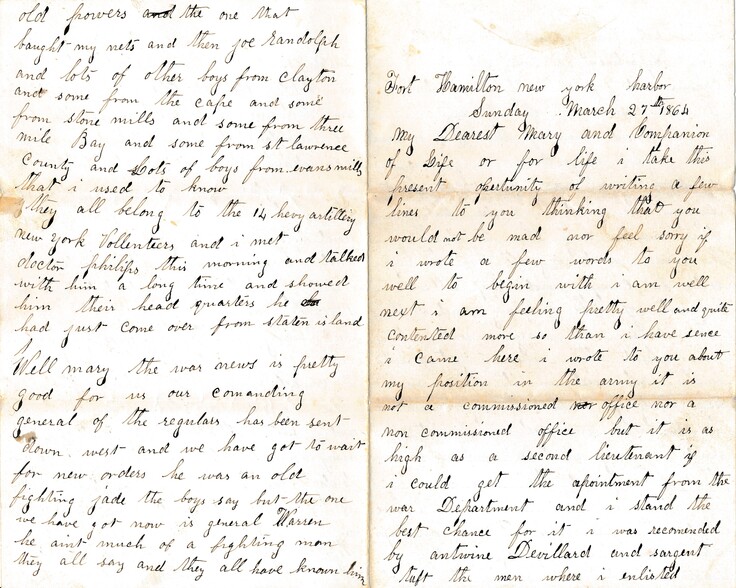 old powers and the one that
baught my nets and then joe Randolph
and lots of other boys from clayton
and some from the cape and some
from stone mills and some from three
mile Bay and some from st lawrence
County and Lots of boys from evans mills
that i used to know
they all belong to the 14 hevy artillery
new york Vollenteers and i met
doctor philips this morning and talked
with him a long time and showed
him their head quarters he
had just come over from staten island
Well mary the war news is pretty
good for us our comanding
general of the regulars has been sent
down west and we have got to wait
for new orders he was an old
fighting jade the boys say but the one
we have got now is general Warren
he aint much of a fighting man
they all say and they all have known him
Fort Hamilton new york harbor
Sunday March 27th 1864
my Dearest Mary and Companion
of Life or for life i take this
present opertunity of writing a few
lines to you thinking that you
would not be mad nor feel sorry if
i wrote a few words to you
well to begin with i am well
next i am feeling pretty well and quite
contented more so than i have sence
i came here i wrote to you about
my position in the army it is
not a commissioned nor office nor a
non commissioned office but it is as
high as a second lieutenant if
i could get the apointment from the
war Department and i stand the
best chance for it i was recomended
by antwine Devillard and sargent
tuft the men where i enlisted